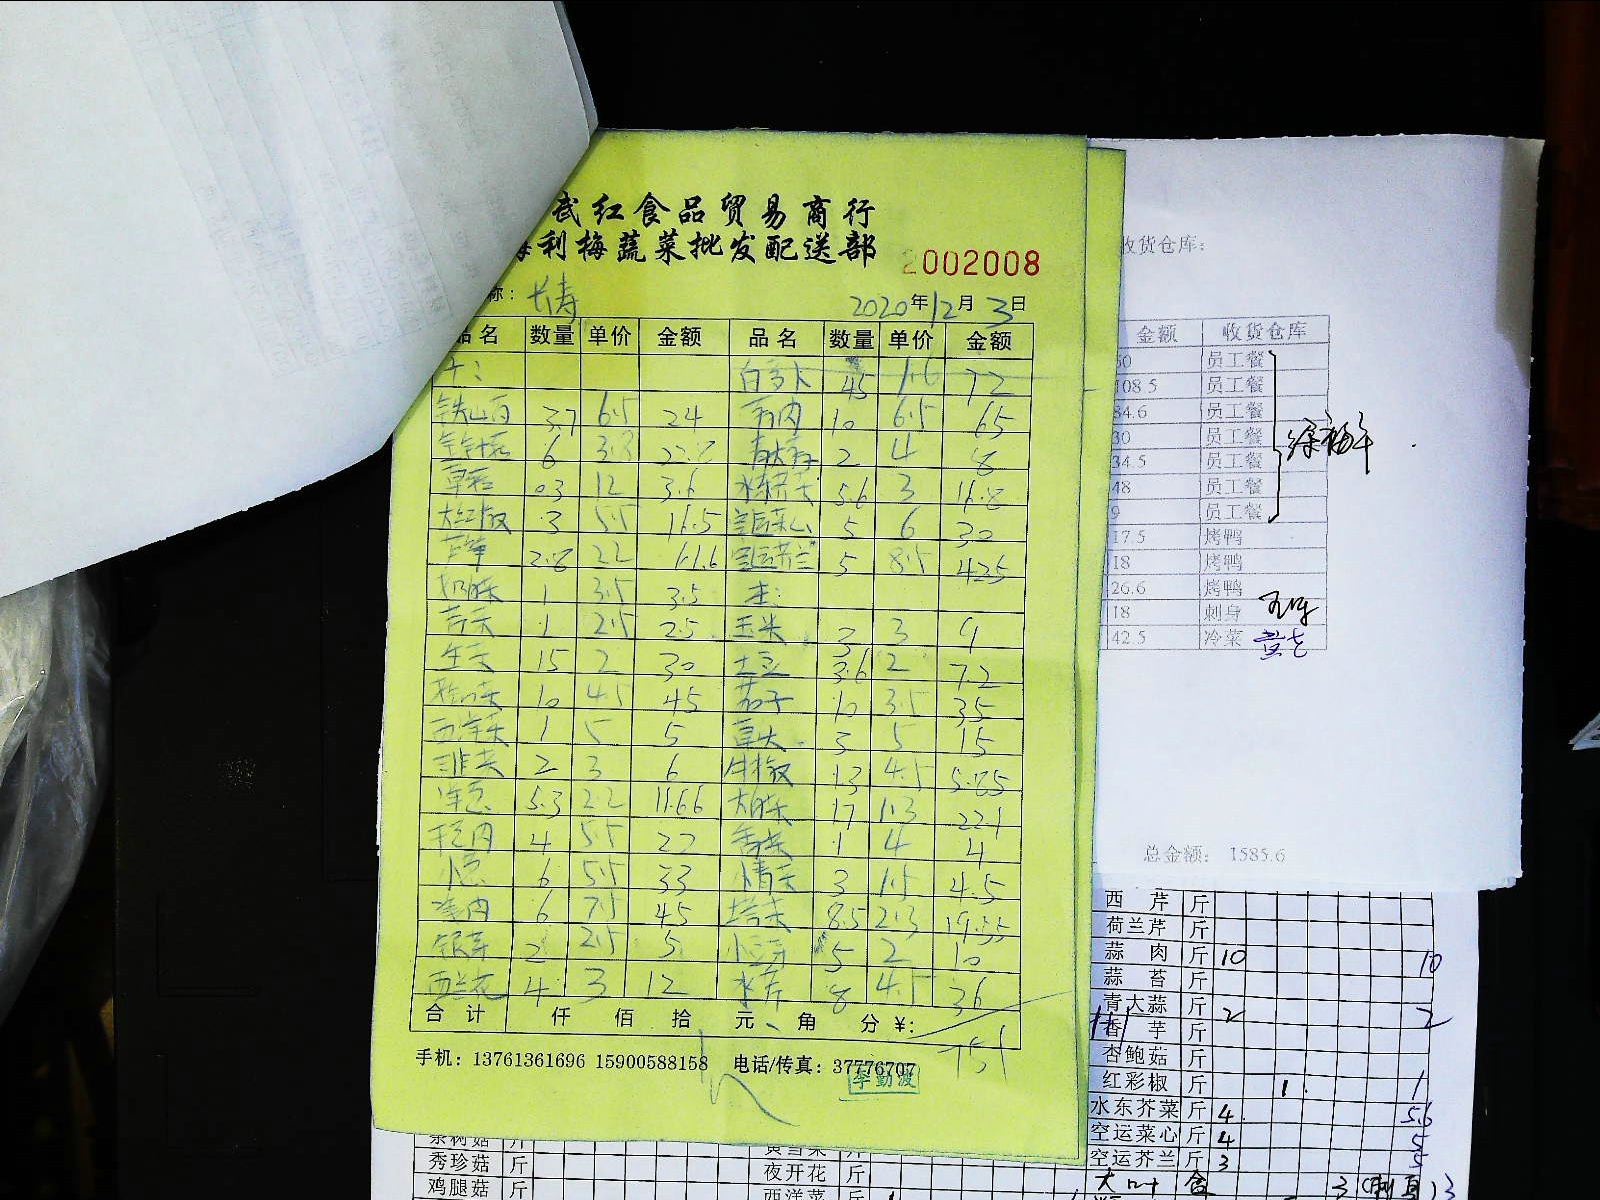 武红食品贸易商行
利梅蔬菜批发配送部
2002008
称：长寿
2020年12月3日
品名 数量 单价 金额 品名 数量 单价 金额
45 1.6 72
铁山药 3.7 6.5 24 10 6.5 65
金针菇 6 3.8 22.8 青大蒜 2 4 8
草菇 03 12 3.6 水东芥菜 5.6 3 16.8
大红椒 3 5.5 16.5 空运菜心 5 6 30
芦笋 2.8 22 61.6 空运芥兰 5 8.5 42.5
1 3.5 3.5
1 2.5 2.5 玉米 3 3 9
生菜 15 2 30 土豆 3.6 2 7.2
10 4.5 45 茄子 10 3.5 35
西洋菜 1 5 5 草头 3 5 15
韭菜 2 3 6 牛椒 1.3 4.5 5.85
洋葱 5.3 2.2 11.66 17 1.3 22.1
4 5.5 22 香菜 1 4 4
小葱 6 5.5 33 小青菜 3 1.5 4.5
6 7.5 45 塔菜 8.5 2.3 19.55
银芽 2 2.5 5 小豆芽 5 2 10
西兰花 4 3 12 水芹 8 4.5 36
合计 仟 佰 拾 元 角 分 ¥:
751
手机：13761361696 15900588158 电话/传真：37776707
李勤波
收货仓库：
金额 收货仓库
员工餐
108.5 员工餐
84.6 员工餐
30 员工餐
34.5 员工餐
48 员工餐
9 员工餐
17.5 烤鸭
18 烤鸭
26.6 烤鸭
18 刺身
42.5 冷菜
总金额： 1585.6
西芹 斤
荷兰芹 斤
蒜肉 斤 10 10
蒜苔 斤
青大蒜 斤 2 2
香芋 斤
杏鲍菇 斤
红彩椒 斤 1 1
水东芥菜 斤 4 5.6
空运菜心 斤 4 5
空运芥兰 斤 3 5
茶树菇 斤
秀珍菇 斤
鸡腿菇 斤
夜开花 斤
西洋菜